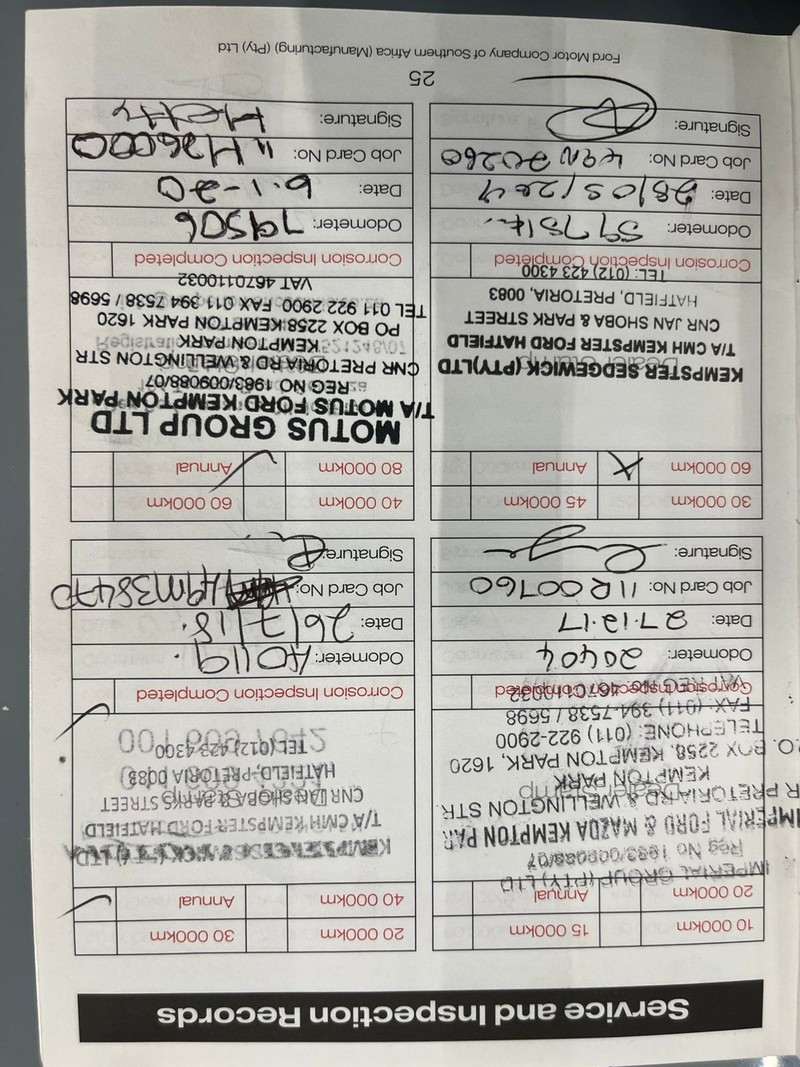 Service and Inspection Records
10 000km 15 000km
20 000km Annual
IMPERIAL GROUP (PTY) LTD
Reg No 1983/009088/07
IMPERIAL FORD & MAZDA KEMPTON PAR
R PRETORIA RD & WELLINGTON STR
KEMPTON PARK
Dealer Stamp
P.O. BOX 2258, KEMPTON PARK, 1620
TELEPHONE: (011) 922-2900
FAX: (011) 394-7538 / 5698
VAT REG No. 4670110032
Corrosion Inspection Completed
Odometer: 20404
Date: 27.12.17
Job Card No: 11R00760
Signature:
20 000km 30 000km
40 000km Annual
T/A CMH KEMPSTER FORD HATFIELD
CNR JAN SHOBA & PARK STREET
HATFIELD, PRETORIA 0083
TEL (012) 423 4300
Corrosion Inspection Completed
Odometer: 40119.
Date: 26/7/18.
Job Card No: 49M38470
Signature:
30 000km 45 000km
60 000km Annual
KEMPSTER SEDGEWICK (PTY)LTD
Dealer Stamp
T/A CMH KEMPSTER FORD HATFIELD
CNR JAN SHOBA & PARK STREET
HATFIELD, PRETORIA, 0083
TEL: (012) 423 4300
Corrosion Inspection Completed
Odometer: 59751
Date: 28/05/2019
Job Card No: 49N20260
Signature:
40 000km 60 000km
80 000km Annual
MOTUS GROUP LTD
T/A MOTUS FORD KEMPTON PARK
REG NO 1983/009088/07
CNR PRETORIA RD & WELLINGTON STR
KEMPTON PARK
PO BOX 2258 KEMPTON PARK 1620
TEL 011 922 2900 FAX 011 394 7538 / 5698
VAT 4670110032
Corrosion Inspection Completed
Odometer: 79506
Date: 6-1-20
Job Card No: 11H26000
Signature:
25
Ford Motor Company of Southern Africa (Manufacturing) (Pty) Ltd